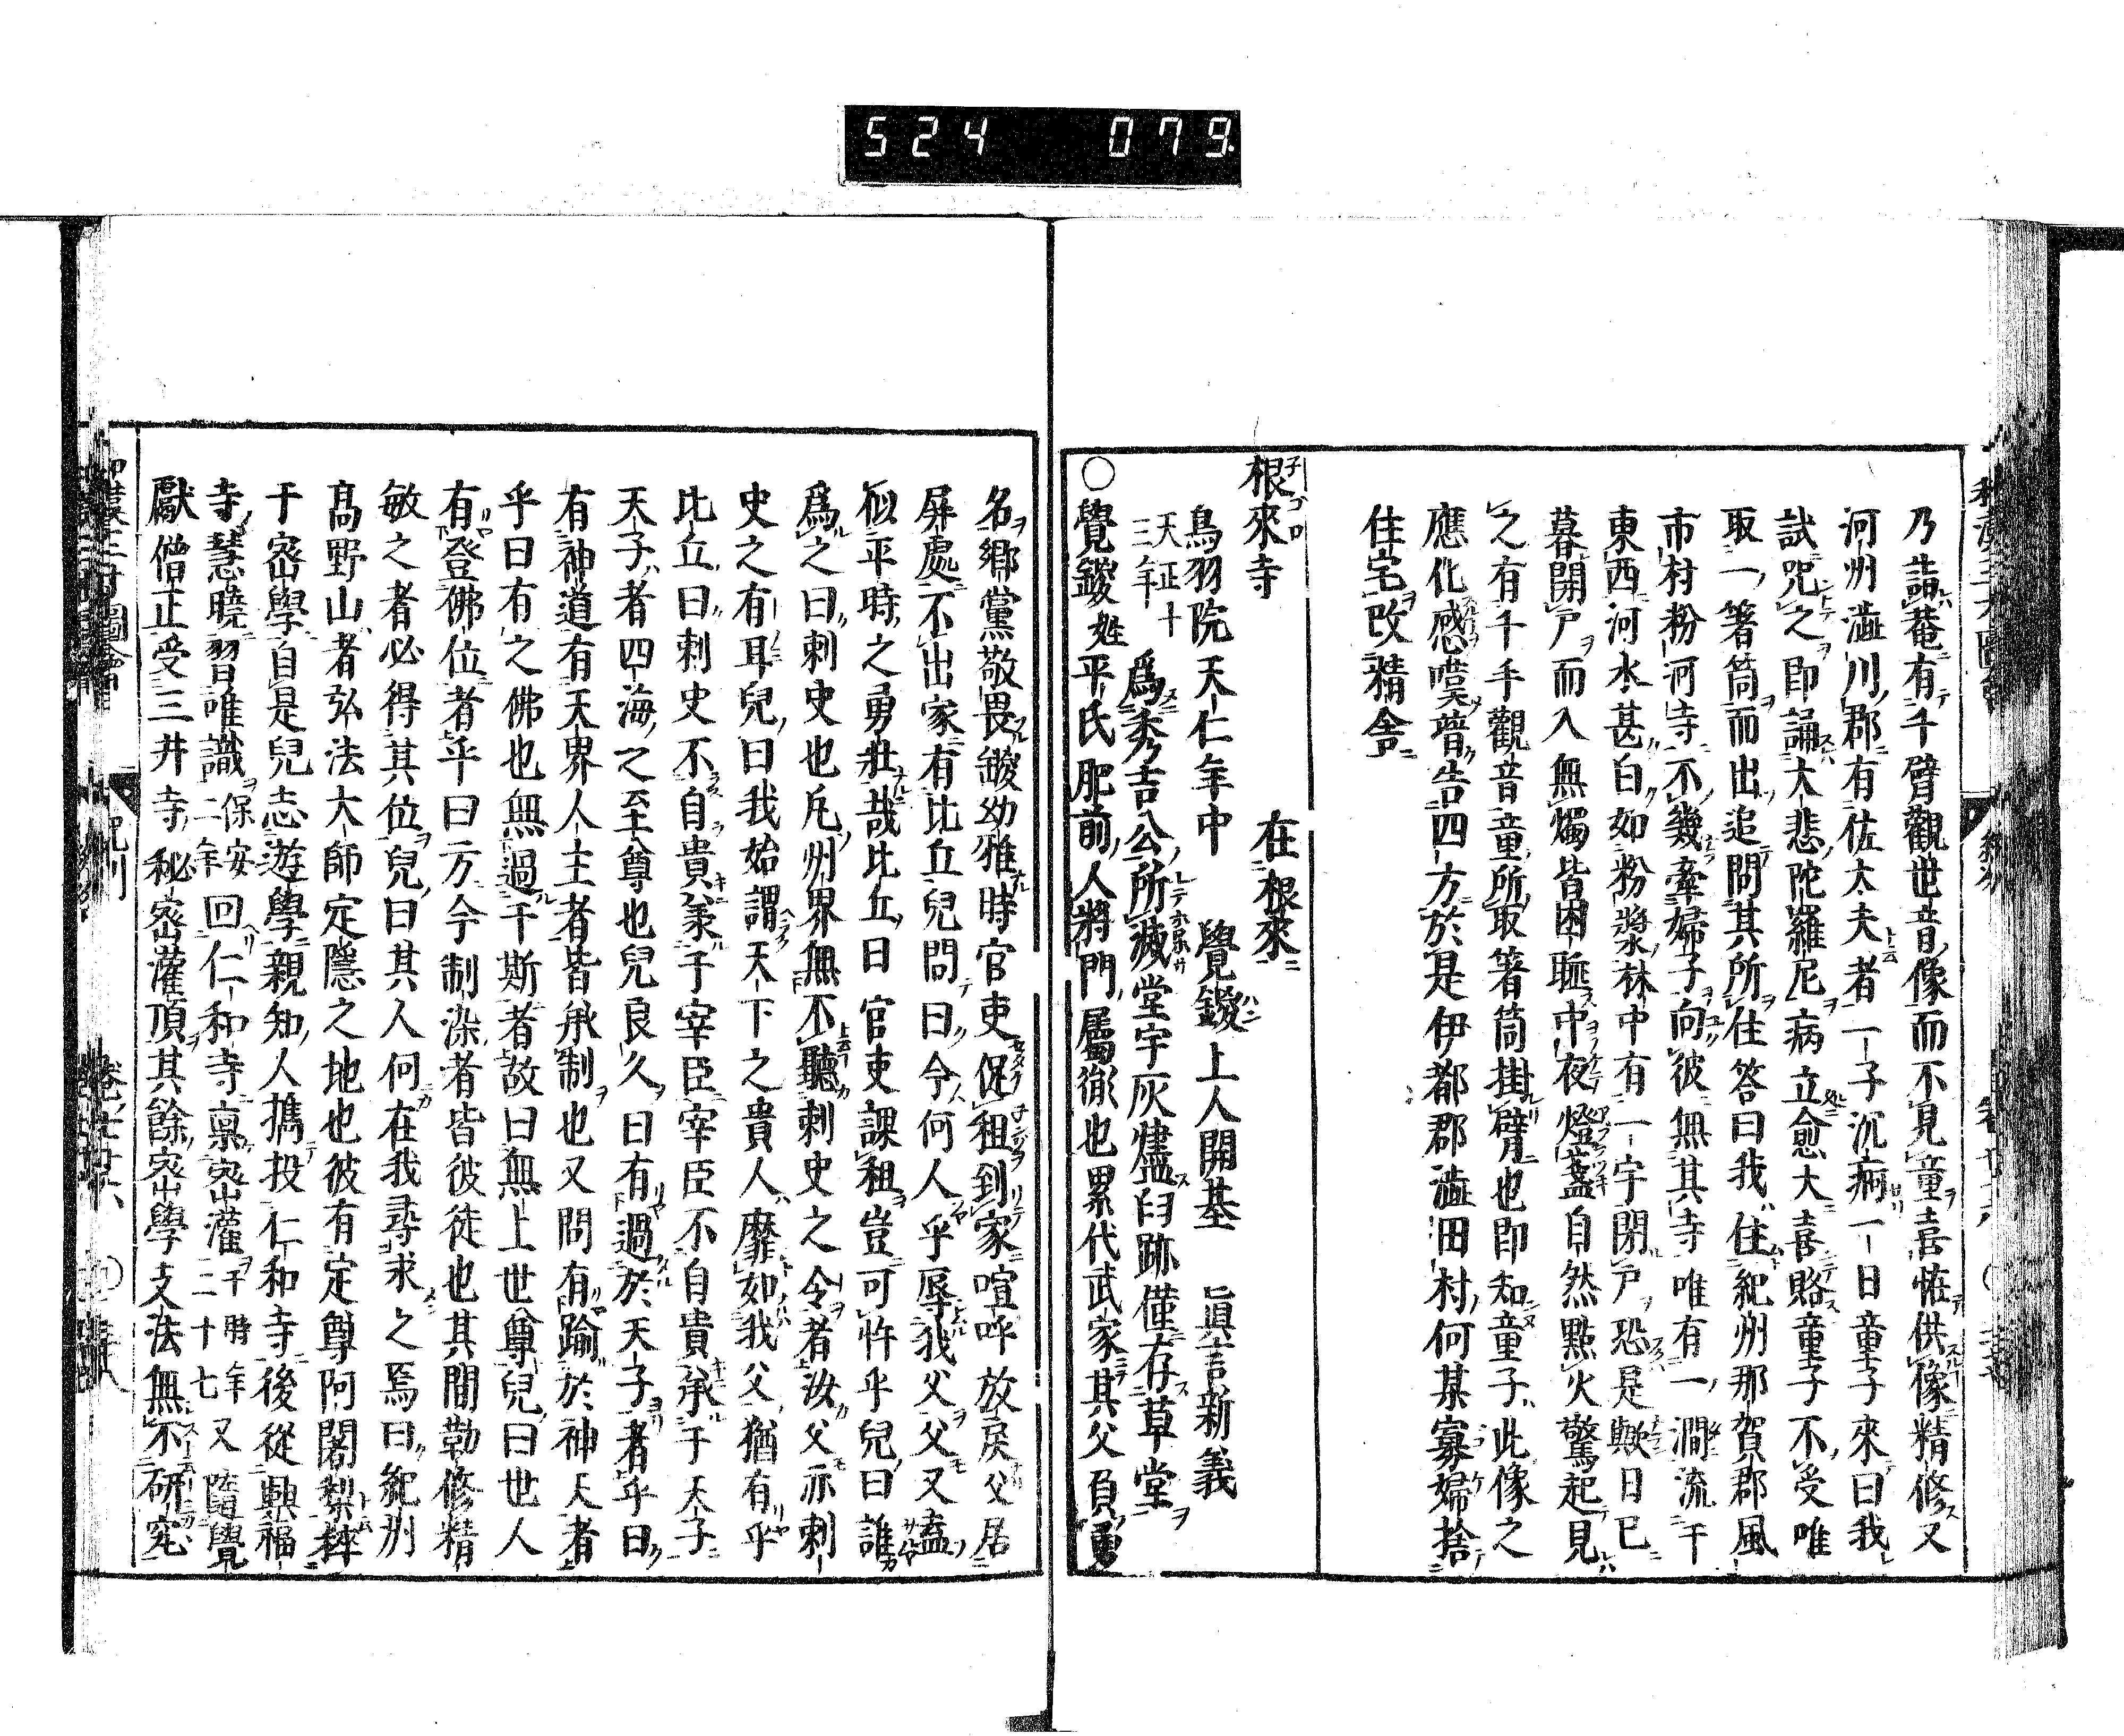 524 079
乃詣菴有千臂觀世音像而不見童喜恠供像精修又
河州澁川郡有佐太夫者一子沉病一日童子來曰我
試咒之即誦大悲陀羅尼病立愈大喜賂童子不受唯
取一箸筒而出追問其所住答曰我住紀州那賀郡風
市村粉河寺不幾牽婦子向彼無其寺唯有一澗流于
東西河水甚白如粉漿林中有一宇閉戸恐是歟日已
暮開戸而入無燭皆困甎中夜燈盞自然點火驚起見
之有千手觀音童所取箸筒掛臂也即知童子此像之
應化感嘆普告四方於是伊都郡澁田村何某寡婦捨
住宅改精舍
根來寺 在根來
鳥羽院天仁年中 覺鑁上人開基 眞言新義
天正十三年爲秀吉公所滅堂宇灰燼臼跡僅存草堂
〇覺鑁姓平氏肥前人將門屬徹也累代武家其父負勇
名鄕黨敬畏鑁幼雅時官吏促租到家喧呼放戻父居
屏處不出家有比丘兒問曰令何人乎辱我父父又盍
似平時之勇壯哉比丘曰官吏課租豈可忤乎兒曰誰
爲之曰刺史也凡州界無不聽刺史之令者汝父亦刺
史之有耳兒曰我始謂天下之貴人靡如我父猶有乎
比丘曰刺史不自貴柔于宰臣宰臣不自貴承于天子
天子者四海之至尊也兒良久曰有過於天子者乎曰
有神道有天界人主者皆承制也又問有踰於神天者
乎曰有之佛也無過于斯者故曰無上世尊兒曰世人
有登佛位者乎曰方今制染者皆彼徒也其間勤修精
敏之者必得其位兒曰其人何在我尋求之焉曰紀州
髙野山者弘法大師定隱之地也彼有定尊阿闍梨粹
于密學自是兒志遊學親知人携投仁和寺後從興福
寺慧曉習唯識保安二年回仁和寺稟密灌于時年二十七又隨覺
猷僧正受三井寺秘密灌頂其餘密學支法無不研究